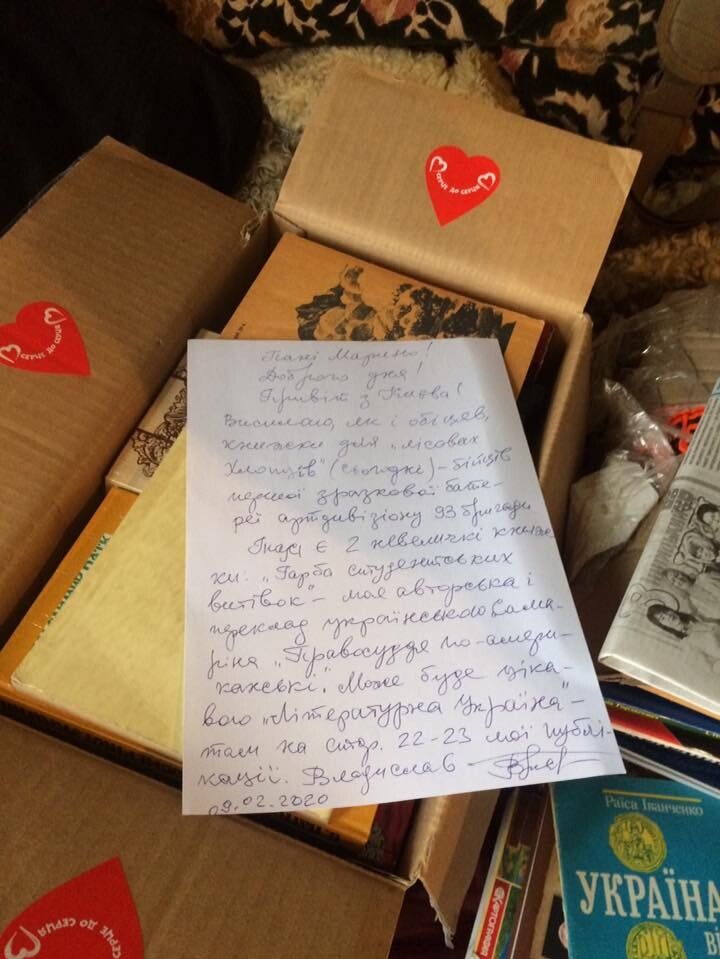 СЕРЦЕ ДО СЕРЦЯ
СЕРЦЕ ДО СЕРЦЯ
Пані Марино!
Доброго дня!
Привіт з Києва!
Висилаю, як і обіцяв,
книжки для „лісових
хлопців" (сьогодні) – бійців
першої зразкової бата-
реї артдивізіону 93 бригади
є 2 невеличкі книж-
ки: „Гарба студентських
витівок" – моя авторська і
переклад українською
„Правосуддя по-амери-
канськи". Може буде ціка-
вою „Літературна Україна" –
там на стор. 22-23 мої публі-
кації. Владислав
09.02.2020
Раїса Іванченко
УКРАЇНА
ВІ
Картографія
СЕРЦЕ ДО СЕРЦЯ